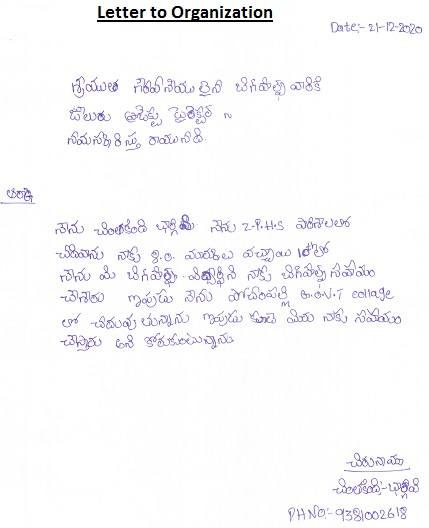 Letter to Organization
Date:- 21-12-2020
శ్రీయుత గౌరవనియులైన బిగ్‌హెల్ప్ వారికి
డైరెక్టర్
నమస్కరిస్తూ రాయునది
నాను చింతకింది భార్గవి నాను Z.P.H.S పాఠశాలలో
చదివాను నాకు 9.0 మార్కులు వచ్చాయి 10th లో
నాను మి బిగ్‌హెల్ప్ నాకు బిగ్‌హెల్ప్ సహాయం
చేశారు ఇప్పుడు నాను పోచంపల్లి G.O.V.T collage
లో చదువుతున్నాను ఇప్పుడు కూడ మిరు నాకు సహాయం
చేస్తారు అని కోరుకుంటున్నాను
చిరునామా
చింతకింది:- భార్గవి
PH NO:- 9381002618